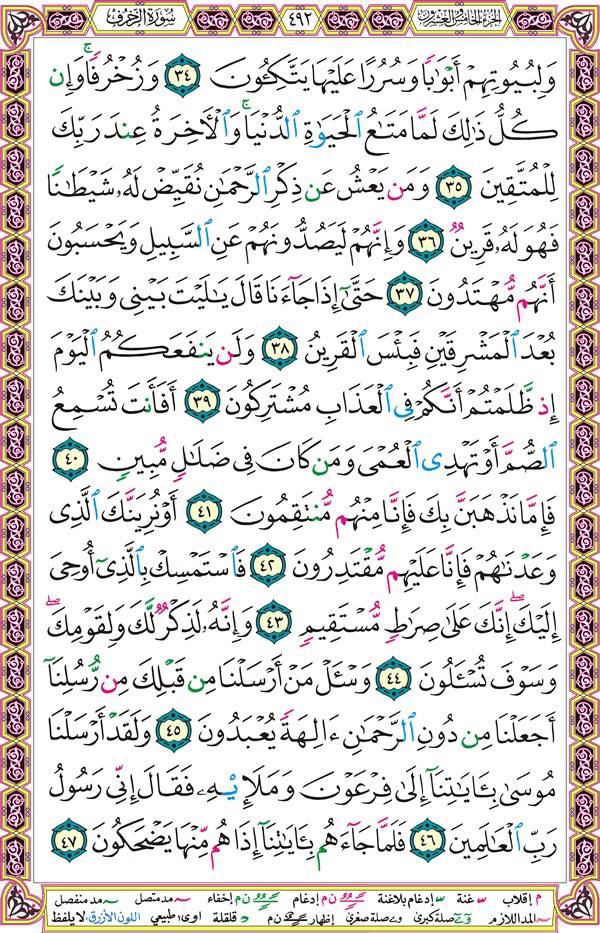 سورة الزخرف
٤٩٢
الجزء الخامس والعشرون
وَلِبُيُوتِهِمْ أَبْوَٰبًا وَسُرُرًا عَلَيْهَا يَتَّكِـُٔونَ ٣٤ وَزُخْرُفًا ۚ وَإِن
كُلُّ ذَٰلِكَ لَمَّا مَتَـٰعُ ٱلْحَيَوٰةِ ٱلدُّنْيَا ۚ وَٱلْـَٔاخِرَةُ عِندَ رَبِّكَ
لِلْمُتَّقِينَ ٣٥ وَمَن يَعْشُ عَن ذِكْرِ ٱلرَّحْمَـٰنِ نُقَيِّضْ لَهُۥ شَيْطَـٰنًا
فَهُوَ لَهُۥ قَرِينٌ ٣٦ وَإِنَّهُمْ لَيَصُدُّونَهُمْ عَنِ ٱلسَّبِيلِ وَيَحْسَبُونَ
أَنَّهُم مُّهْتَدُونَ ٣٧ حَتَّىٰٓ إِذَا جَآءَنَا قَالَ يَـٰلَيْتَ بَيْنِى وَبَيْنَكَ
بُعْدَ ٱلْمَشْرِقَيْنِ فَبِئْسَ ٱلْقَرِينُ ٣٨ وَلَن يَنفَعَكُمُ ٱلْيَوْمَ
إِذ ظَّلَمْتُمْ أَنَّكُمْ فِى ٱلْعَذَابِ مُشْتَرِكُونَ ٣٩ أَفَأَنتَ تُسْمِعُ
ٱلصُّمَّ أَوْ تَهْدِى ٱلْعُمْىَ وَمَن كَانَ فِى ضَلَـٰلٍ مُّبِينٍ ٤٠
فَإِمَّا نَذْهَبَنَّ بِكَ فَإِنَّا مِنْهُم مُّنتَقِمُونَ ٤١ أَوْ نُرِيَنَّكَ ٱلَّذِى
وَعَدْنَـٰهُمْ فَإِنَّا عَلَيْهِم مُّقْتَدِرُونَ ٤٢ فَٱسْتَمْسِكْ بِٱلَّذِىٓ أُوحِىَ
إِلَيْكَ ۖ إِنَّكَ عَلَىٰ صِرَٰطٍ مُّسْتَقِيمٍ ٤٣ وَإِنَّهُۥ لَذِكْرٌ لَّكَ وَلِقَوْمِكَ ۖ
وَسَوْفَ تُسْـَٔلُونَ ٤٤ وَسْـَٔلْ مَنْ أَرْسَلْنَا مِن قَبْلِكَ مِن رُّسُلِنَآ
أَجَعَلْنَا مِن دُونِ ٱلرَّحْمَـٰنِ ءَالِهَةً يُعْبَدُونَ ٤٥ وَلَقَدْ أَرْسَلْنَا
مُوسَىٰ بِـَٔايَـٰتِنَآ إِلَىٰ فِرْعَوْنَ وَمَلَإِي۟هِۦ فَقَالَ إِنِّى رَسُولُ
رَبِّ ٱلْعَـٰلَمِينَ ٤٦ فَلَمَّا جَآءَهُم بِـَٔايَـٰتِنَآ إِذَا هُم مِّنْهَا يَضْحَكُونَ ٤٧
م إقلاب غنة إدغام بلاغنة ن م إدغام ن م إخفاء مد متصل مد منفصل
المد اللازم صلة كبرى صلة صغرى إظهار ن م قلقلة طبيعي اللون الأزرق: لا يلفظ